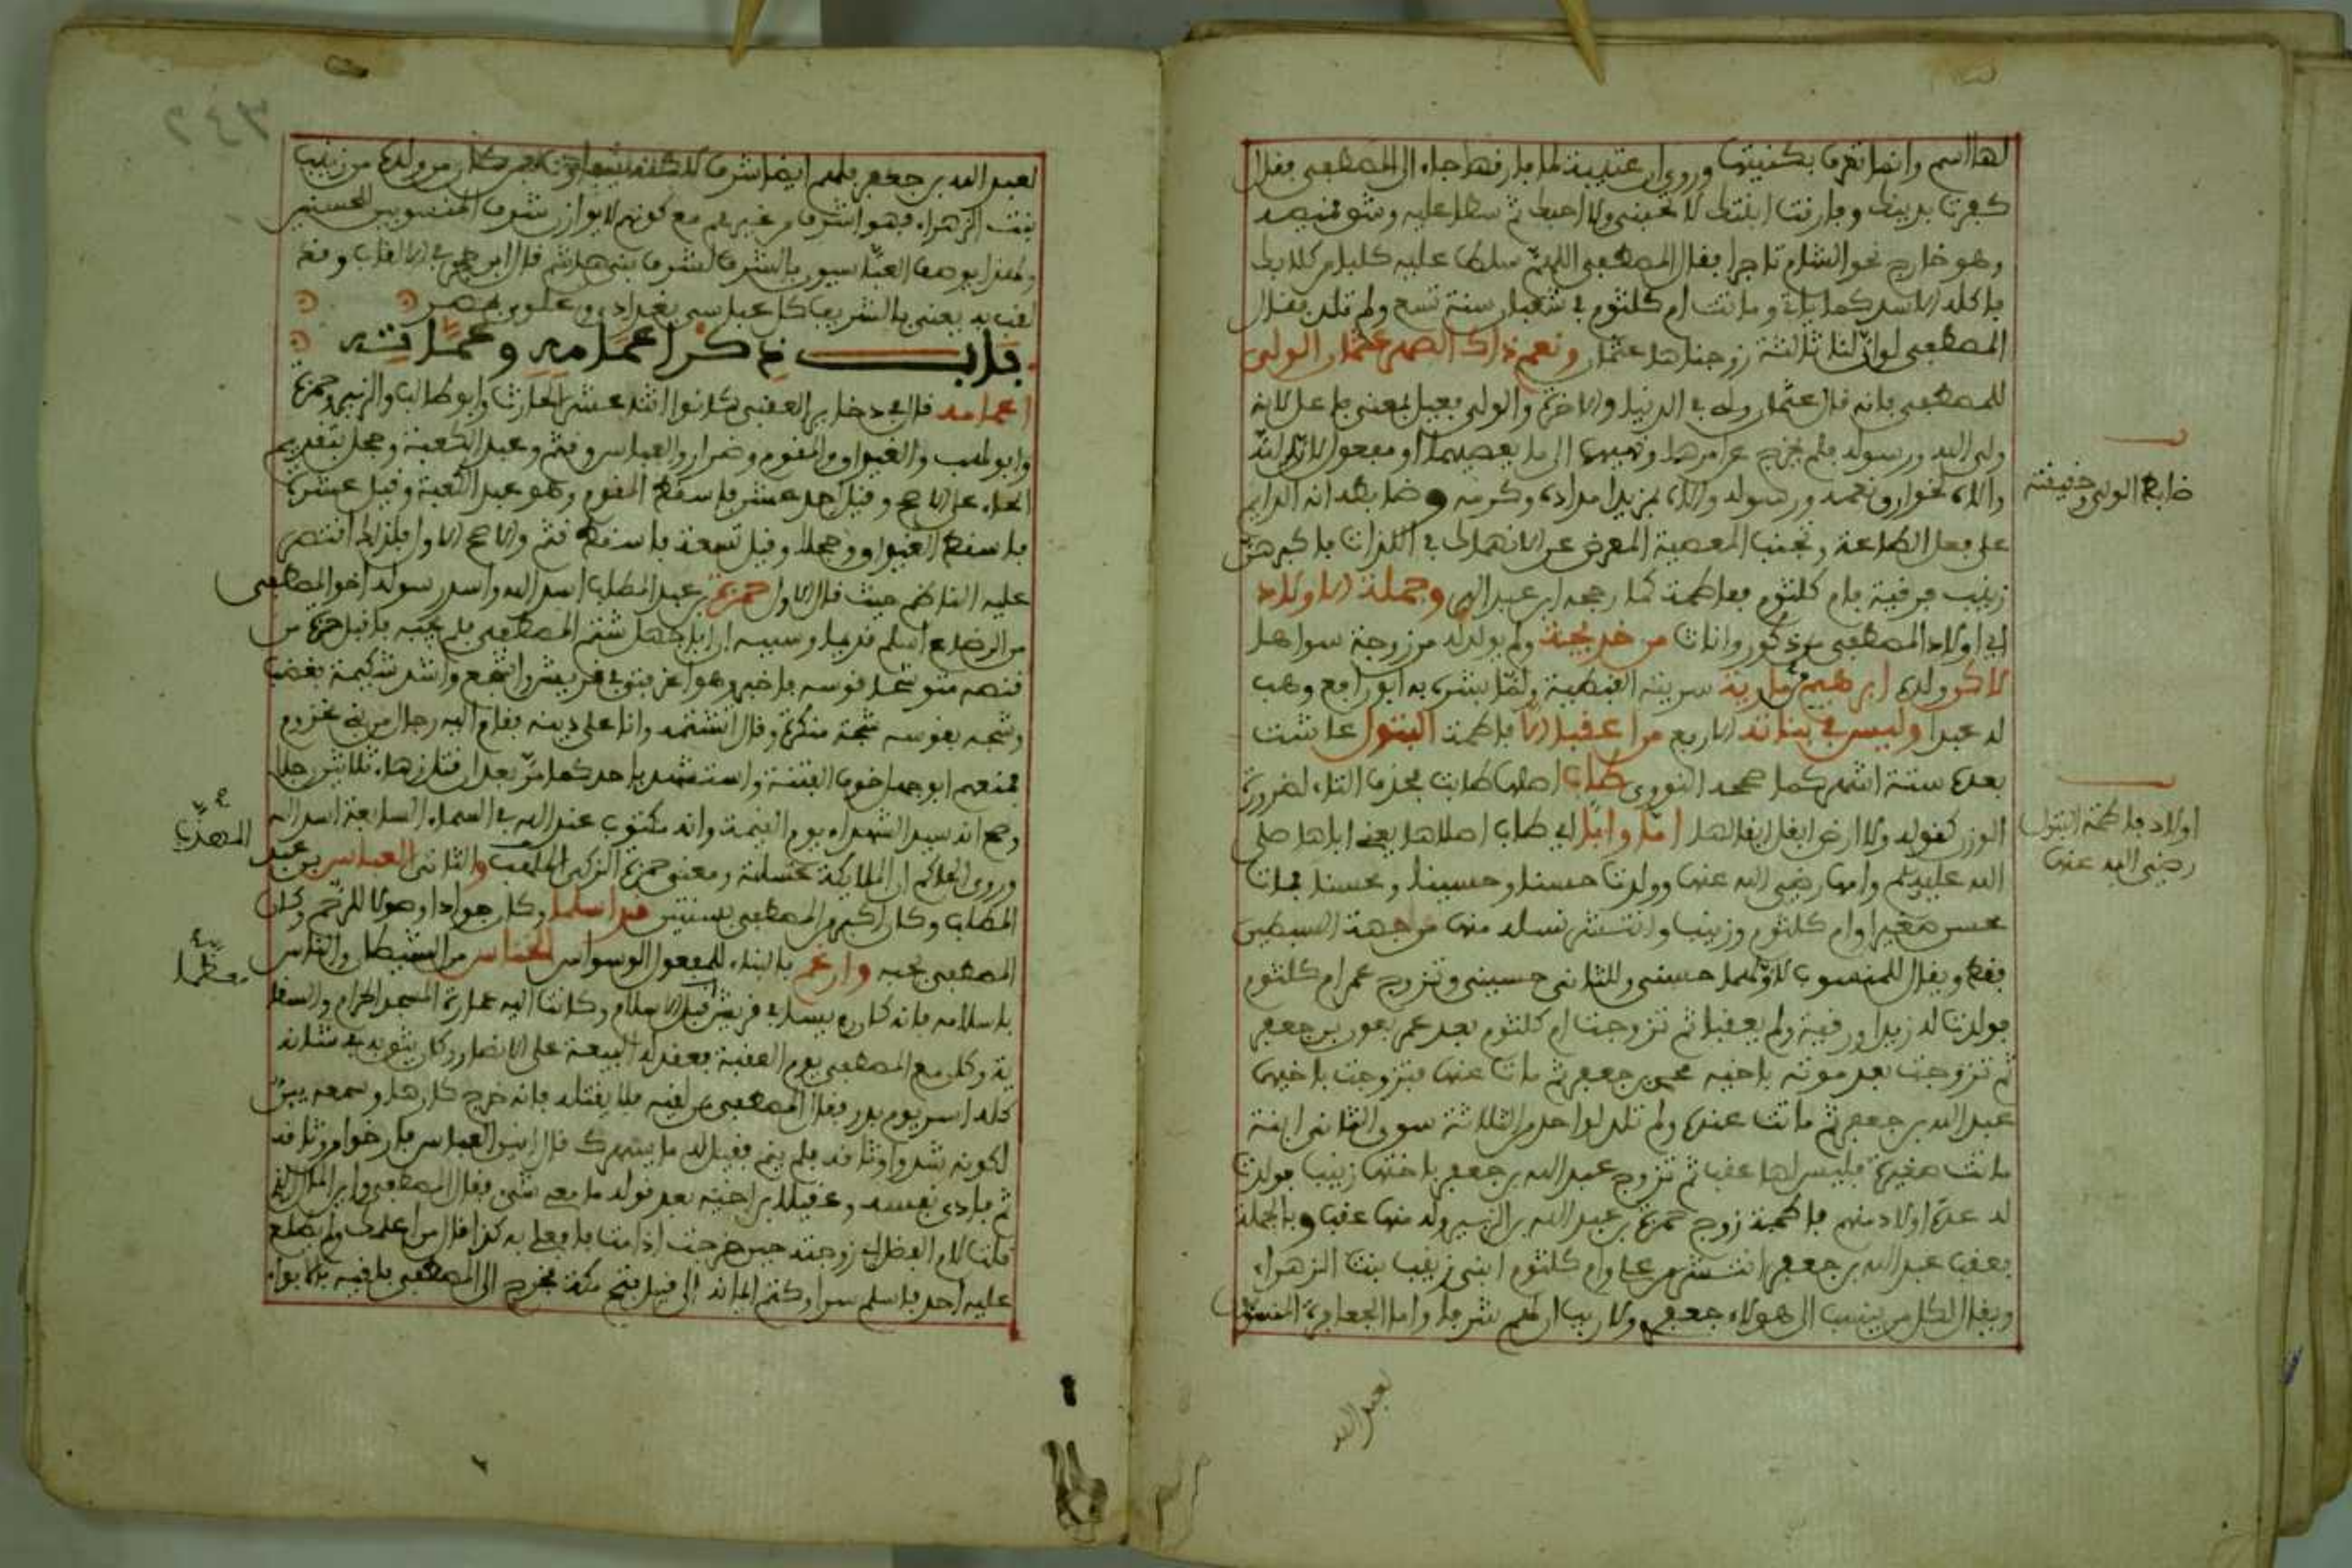 لها اسم وانما تعرف بكنيتها وروي ان عتيبة لما فارقها جاء الى المصطفى فقال
كفرت بدينك وفارقت ابنتك لا تحبني ولا احبك ثم سطا عليه وشق قميصه
وهو خارج نحو الشام تاجرا فقال المصطفى اللهم سلط عليه كلبا من كلابك
فاكله الاسد كما ياتي وماتت ام كلثوم في شعبان سنة تسع ولم تلد فقال
المصطفى لو ان لنا ثالثة زوجناها عثمان ونعم ذاك الصهر عثمان الولي
للمصطفى فانه قال عثمان ولي في الدنيا والاخرة والولي فعيل بمعنى فاعل لانه
ولى الله ورسوله فلم يخرج عن امرهما ونهيهما الى ما يغضبهما او مفعول لان الله
والاه بخوارق نعمه ورسوله والاه بمزيد امداده وكرمه وضابطه انه الدايم
على فعل الطاعة وتجنب المعصية المعرض عن الانهماك في اللذات فاكبرهن
زينب فرقية فام كلثوم ففاطمة كما رجحه ابن عبد البر وجملة الاولاد
اي اولاد المصطفى من ذكور واناث من خديجة ولم يولد له من زوجة سواها
لاكن ولده ابرهيم من مارية سريته القبطية ولما بشره به ابو رافع وهب
له عبدا وليس في بناته الاربع من اعقب الا فاطمة البتول عاشت
بعده ستة اشهر كما صححه النووي طاب اصلها طابت بحذف التاء لضرورة
الوزن كقوله ولا ارض ابقل ابقالها اما وابا اي طاب اصلاها يعني اباها صلى
الله عليه وسلم وامها رضي الله عنها وولدت حسنا وحسينا ومحسنا فمات
محسن صغيرا وام كلثوم وزينب وانتشر نسله منها من جهة السبطين
فقط ويقال للمنسوب لاولهما حسني وللثاني حسيني وتزوج عمر ام كلثوم
فولدت له زيدا ورقية ولم يعقبا ثم تزوجت ام كلثوم بعد عمر بعون بن جعفر
ثم تزوجت بعد موته باخيه محمد بن جعفر ثم مات عنها فتزوجت باخيهما
عبد الله بن جعفر ثم ماتت عنده ولم تلد لواحد من الثلاثة سوى الثاني ابنة
ماتت صغيرة فليس لها عقب ثم تزوج عبد الله بن جعفر باختها زينب فولدت
له عدة اولاد منهم فاطمة زوج حمزة بن عبد الله بن الزبير وله منها عقب وبالجملة
فعقب عبد الله بن جعفر انتشر من علي وام كلثوم ابني زينب بنت الزهراء
ويقال لكل من ينسب الى هولاء جعفري ولا ريب ان لهم شرفا واما الجعافرة المنسوبون
ضابط الولي وحقيقته
اولاد فاطمة البتول
رضي الله عنها
لعبد الله
٣٤٢
لعبد الله بن جعفر فلهم ايضا شرف لكنه يتفاوت فمن كان من ولده من زينب
بنت الزهراء فهو اشرف من غيرهم مع كونهم لا يوازن شرف المنسوبين للحسنين
ولهذا يوصف العباسيون بالشرف لشرف بني هاشم قال ابن حجر في الالقاب وقد
لقب به يعني بالشريف كل عباسي ببغداد وعلوي بمصر
باب ذكر اعمامه وعماته
اعمامه قال في ذخاير العقبى كانوا اثنا عشر الحارث وابو طالب والزبير وحمزة
وابو لهب والغيداق والمقوم وضرار والعباس وقثم وعبد الكعبة وحجل بتقديم
الحاء على الاصح وقيل احد عشر فاسقط المقوم وهو عبد الكعبة وقيل عشرة
فاسقط الغيداق وحجلا وقيل تسعة فاسقط قثم والاصح الاول فلذلك اقتصر
عليه الناظم حيث قال الاول حمزة بن عبد المطلب اسد الله واسد رسوله اخو المصطفى
من الرضاع اسلم قديما وسببه ان ابا جهل شتم المصطفى فلم يجبه فاقبل حمزة من
قنصه متوشحا قوسه فاخبر وهو اعز فتى في قريش واشجع واشد شكيمة فغضب
وشجه بقوسه شجة منكرة وقال اتشتمه وانا على دينه فقام اليه رجال من بني مخزوم
فمنعهم ابو جهل خوف الفتنة واستشهد باحد كما مر بعد ان قتل زهاء ثلاثين رجلا
وصح انه سيد الشهداء يوم القيمة وانه مكتوب عند الله في السماء السابعة اسد الله
وروى الحاكم ان الملايكة غسلته ومعنى حمزة الذكي الملقب والثاني العباس بن عبد
المطلب وكان اكبر من المصطفى بسنتين قد اسلما وكان جوادا وصولا للرحم وكان
المصطفى يحبه وارغم بالبناء للمفعول الوسواس الخناس من الشيطان والناس
باسلامه فانه كان رييسا في قريش قبل الاسلام وكانت اليه عمارة المسجد الحرام والسقا
ية وكان مع المصطفى يوم العقبة يعقد له البيعة على الانصار وكان يثق به في شانه
كله اسر يوم بدر فقال المصطفى من لقيه فلا يقتله فانه خرج كارها وسمعه يين
لكونه شدوا وثاقه فلم ينم فقيل له ما يسهرك قال انين العباس فارخوا من وثاقه
ثم فادى نفسه وعقيلا بن اخيه بعد قوله ما معي شي فقال المصطفى واين المال الذي
قلت لام الفضل اي زوجته حين خرجت اذا مت فافعلي به كذا قال من اعلمك ولم يطلع
عليه احد فاسلم سرا وكتم ايمانه الى قبيل فتح مكة فخرج الى المصطفى فلقيه بالابواء
المهذب
معظما